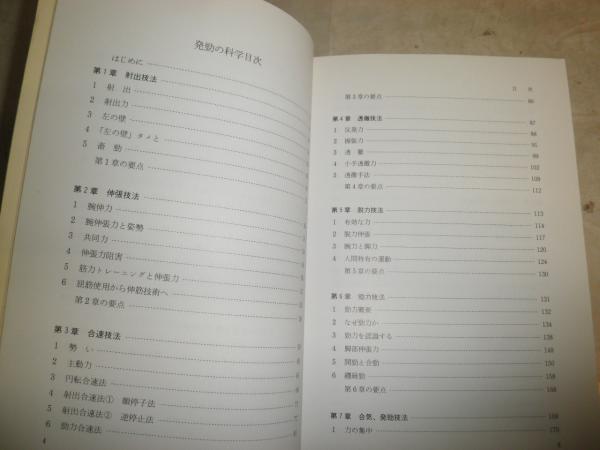 発勁の科学目次
はじめに
第1章 射出技法
1 射 出
2 射出力
3 左の壁
4 「左の壁」タメと
5 蓄 勁
第1章の要点
第2章 伸張技法
1 腕伸力
2 腕伸張力と姿勢
3 共同力
4 伸張力阻害
5 筋力トレーニングと伸張力
6 屈筋使用から伸筋技術へ
第2章の要点
第3章 合速技法
1 勢 い
2 主動力
3 円転合速法
4 射出合速法① 順停子法
5 射出合速法② 逆停止法
6 勁力合速法
4
目 次
第3章の要点 86
第4章 透徹技法 87
1 反発力 88
2 掤張力 95
3 透 徹 99
4 小手透徹力 102
5 透徹手法 109
第4章の要点 112
第5章 脱力技法 113
1 有効な力 114
2 脱力伸張 117
3 腕力と脚力 120
4 人間特有の運動 124
第5章の要点 130
第6章 勁力技法 131
1 勁力概要 132
2 なぜ勁力か 134
3 勁力を認識する 138
4 脚部伸張力
5 開勁と合勁 150
6 纒絲勁 158
第6章の要点 168
第7章 合気、発勁技法 169
1 力の集中 170